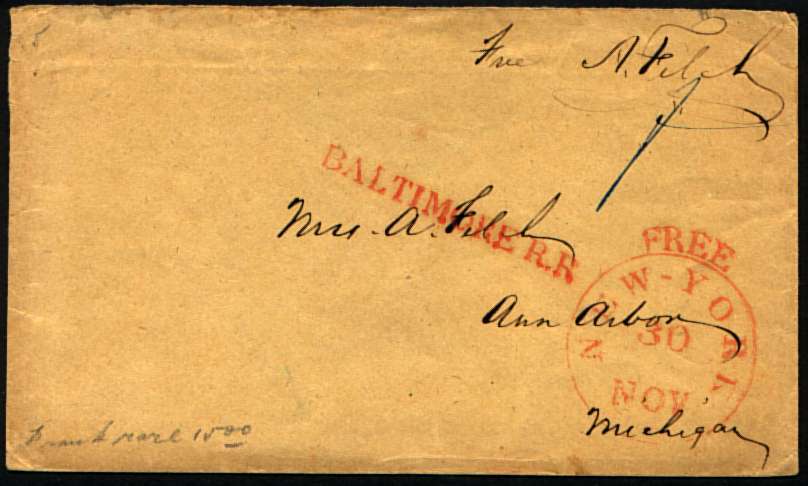 Free A. Felch
BALTIMORE R.R
Mrs. A. Felch
FREE
Ann Arbor
NEW-YORK
30
NOV
Michigan
rare 15.00